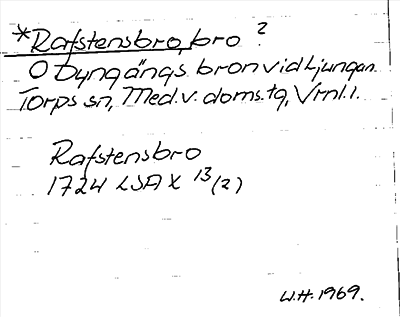 *Rafstensbro, bro ?
O Byngängs bron vid Ljungan.
Torps sn, Med. v. doms. tg, Vrnl. l.
Rafstensbro
1724 LSA X 13/(2)
W.H. 1969.